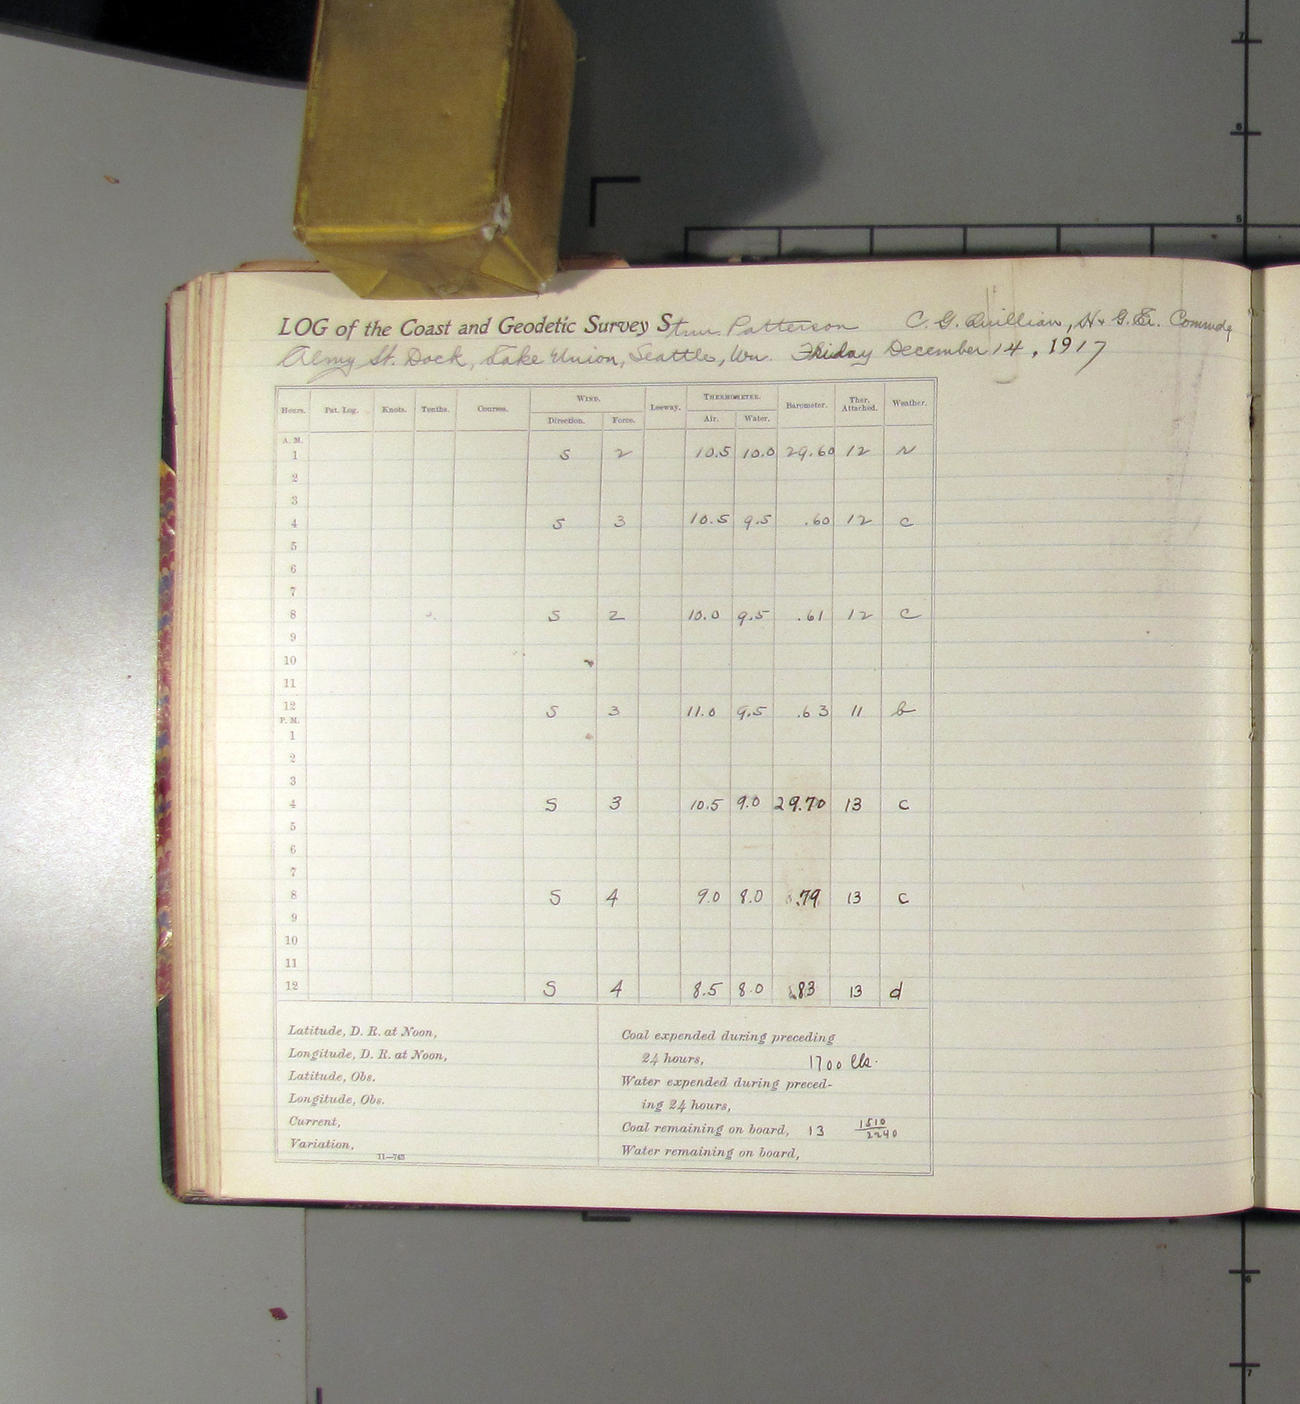 LOG of the Coast and Geodetic Survey Stmr. Patterson C. G. Quillian, H. & G. E. Commdg
St. Dock, Lake Union, Seattle, Wn. Friday December 14, 1917
Hours. Pat. Log. Knots. Tenths. Courses. WIND. Leeway. THERMOMETER. Barometer. Ther. Attached. Weather.
Direction. Force. Air. Water.
A. M.
1 S 2 10.5 10.0 29.60 12 r
2
3
4 S 3 10.5 9.5 .60 12 c
5
6
7
8 S 2 10.0 9.5 .61 12 c
9
10
11
12 S 3 11.0 9.5 .63 11 b
P. M.
1
2
3
4 S 3 10.5 9.0 29.70 13 c
5
6
7
8 S 4 9.0 8.0 .79 13 c
9
10
11
12 S 4 8.5 8.0 .83 13 d
Latitude, D. R. at Noon,
Longitude, D. R. at Noon,
Latitude, Obs.
Longitude, Obs.
Current,
Variation,
11—763
Coal expended during preceding
24 hours, 1700 lbs.
Water expended during preced-
ing 24 hours,
Coal remaining on board, 13 1510/2240
Water remaining on board,
7
6
5
6
7